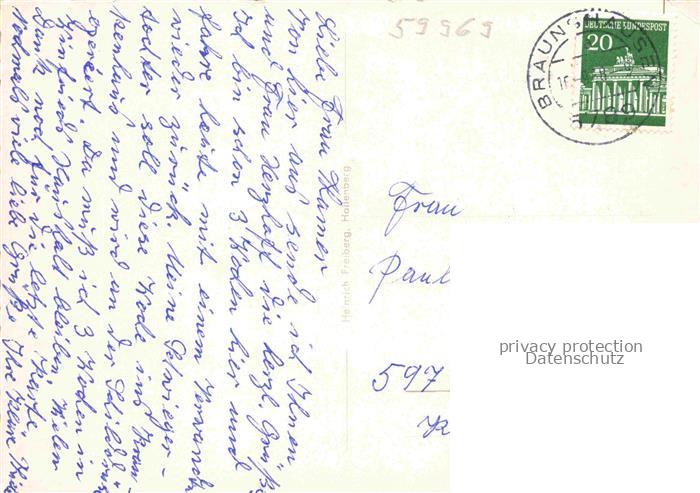 Liebe Frau Kamen
Von hier aus sende ich Ihnen,
und Frau Herzhaft die herzl. Grüße
Ich bin schon 3 Wochen hier und
fahre heute mit einem Verwandt
wieder zurück. Meine Schwieger-
tochter soll diese Woche ins Kran-
kenhaus und wird an der Schilddrüse
operiert. Da muß ich 3 Wochen in
Haushalt bleiben. Vielen
Dank noch für die letzte Karte
Nochmals viele liebe Grüße Ihre
Heinrich Freiberg, Hallenberg
59969
BRAUNSHAUSEN
5789
DEUTSCHE BUNDESPOST
20
Frau
Paul
597
privacy protection
Datenschutz